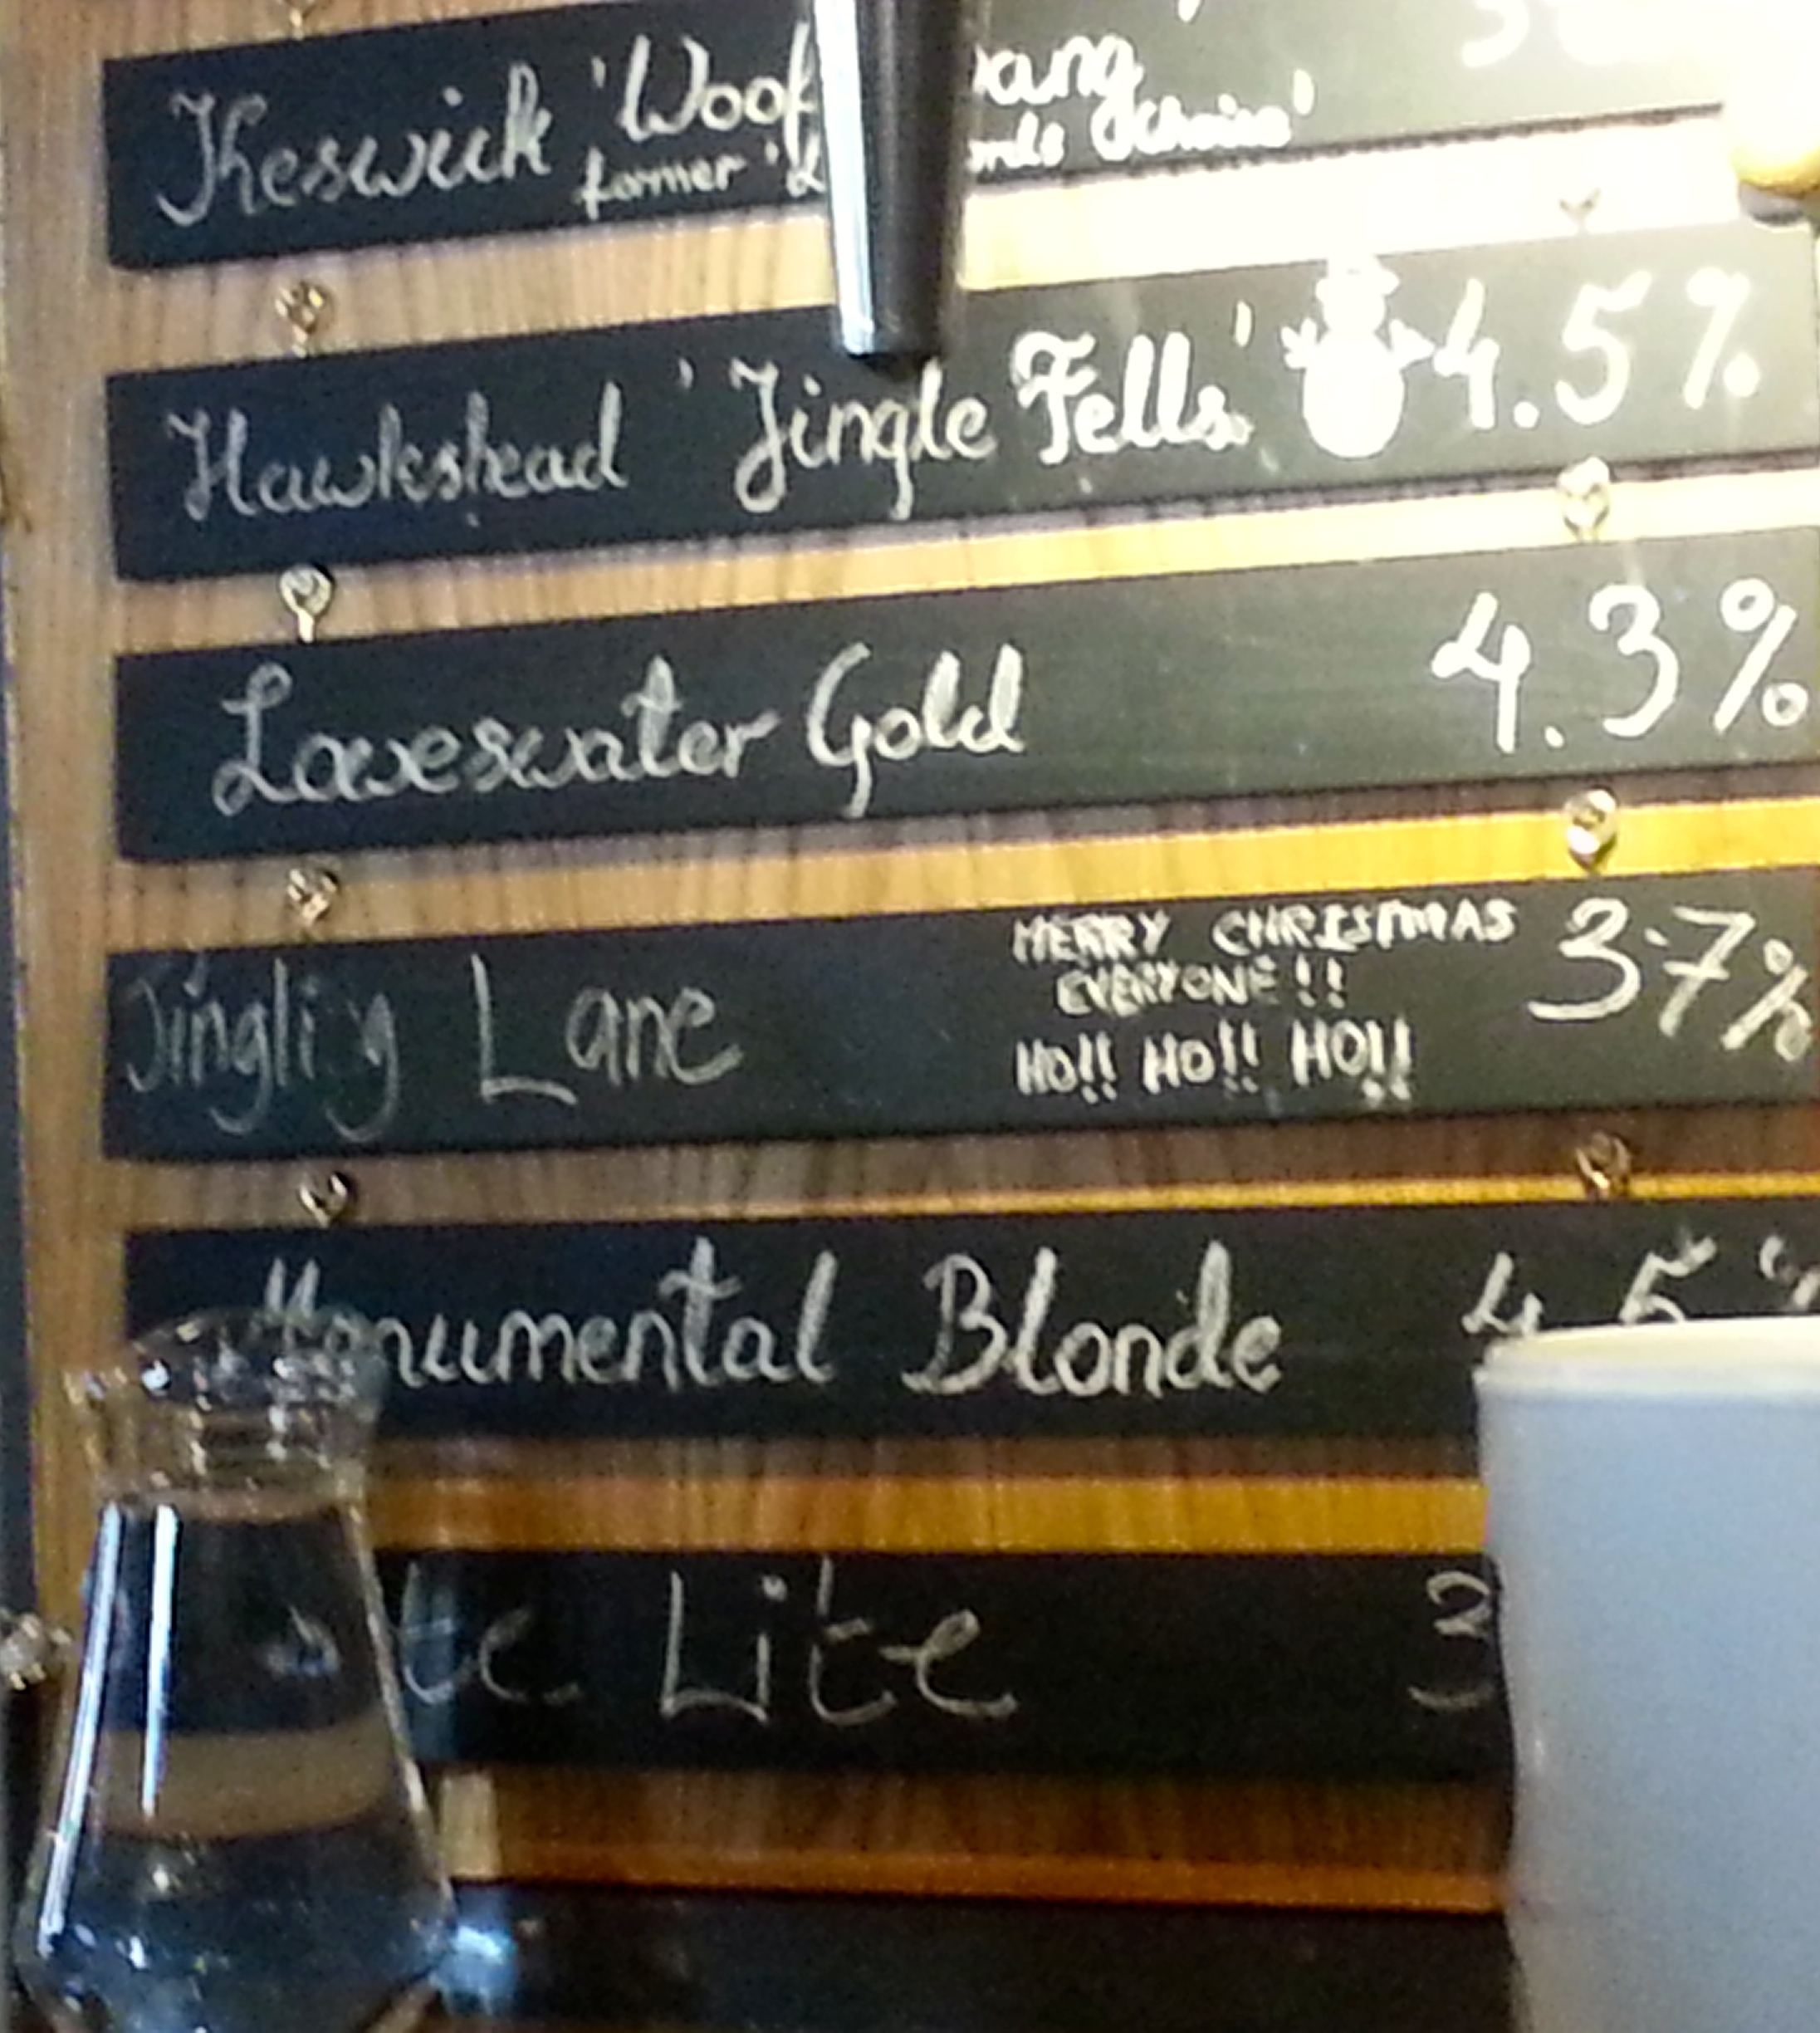 Keswick 'Woof
former
Choice'
Hawkshead 'Jingle Fells' 4.5%
Loweswater Gold 4.3%
Jingling Lane 3.7%
MERRY CHRISTMAS
EVERYONE!!
HO!! HO!! HO!!
Monumental Blonde 4.5%
Lite 3